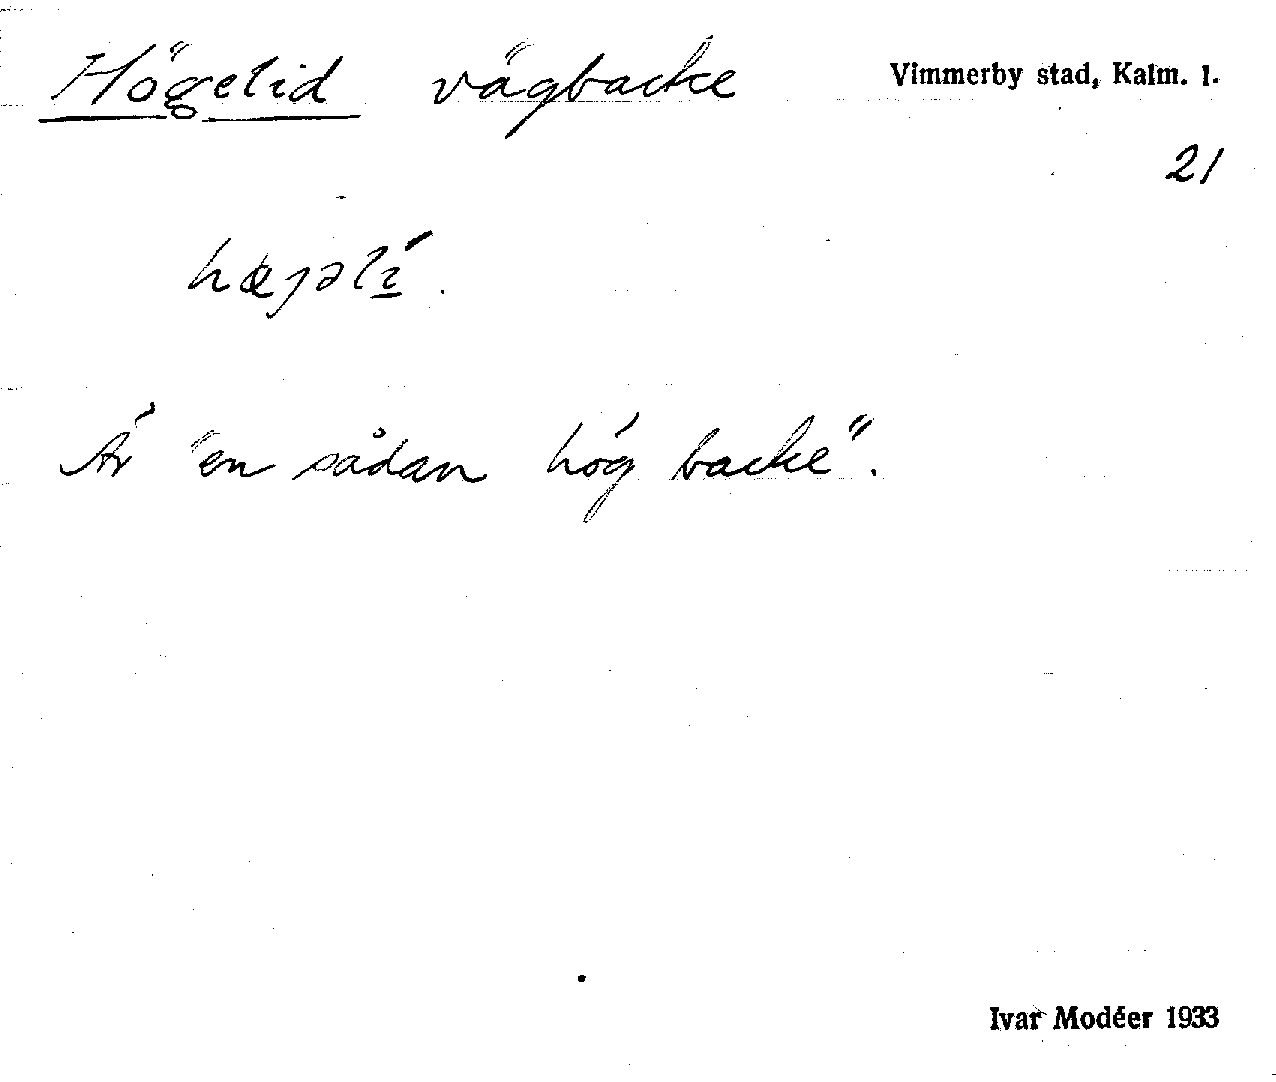 Högelid vägbacke Vimmerby stad, Kalm. l.
21
hæȷəlí.
Är "en sådan hög backe".
Ivar Modéer 1933